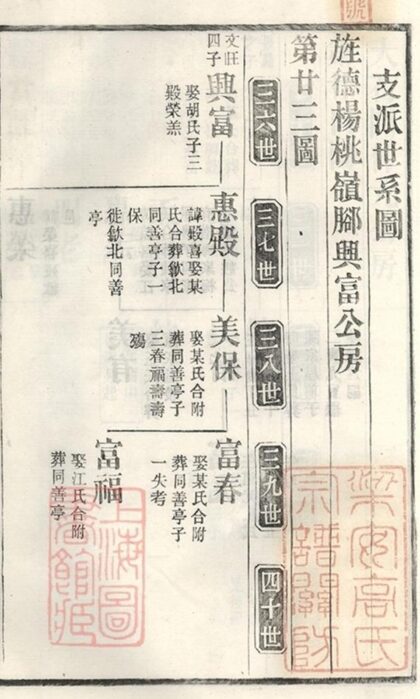 支派世系圖
旌德楊桃嶺腳興富公房
第廿三圖
三六世
三七世
三八世
三九世
四十世
文旺
四子
興富
娶胡氏子三
殿榮羔
惠殿
諱殿喜娶某
氏合葬歙北
同善亭子一
保
徙歙北同善
亭
美保
娶某氏合附
葬同善亭子
三春福壽壽
殤
富春
娶某氏合附
葬同善亭子
一失考
富福
娶江氏合附
葬同善亭
梁安高氏
宗譜關防
上海圖
書館藏